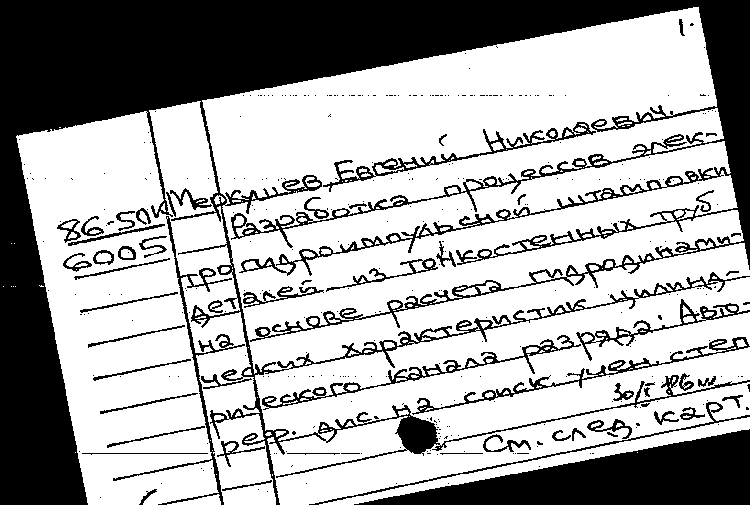 1.
Меркушев, Евгений Николаевич.
86-50К
6005
Разработка процессов элек-
трогидроимпульсной штамповки
деталей из тонкостенных труб
на основе расчета гидродинами-
ческих характеристик цилинд-
рического канала разряда: Авто-
реф. дис. на соиск. учен. степ
См. след. карт.